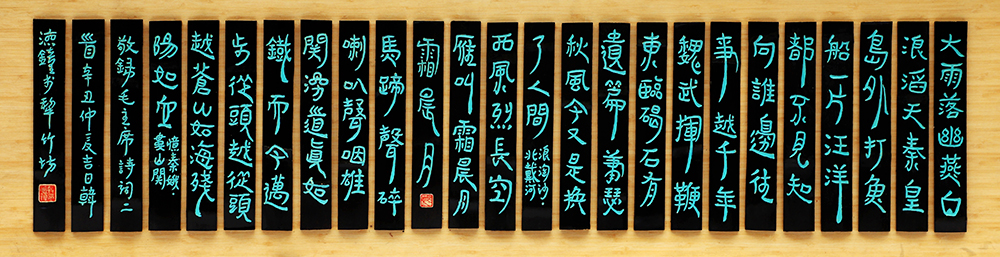 大雨落幽燕白
浪滔天秦皇
島外打魚
船一片汪洋
都不見知
向誰邊往
事越千年
魏武揮鞭
東臨碣石有
遺篇蕭瑟
秋風今又是換
了人間
浪淘沙·
北戴河
西風烈長空
雁叫霜晨月
霜晨月
馬蹄聲碎
喇叭聲咽雄
關漫道真如
鐵而今邁
步從頭越從頭
越蒼山如海殘
陽如血
憶秦娥·
婁山關
敬錄毛主席詩詞二
首辛丑仲夏吉日韓
竹坊